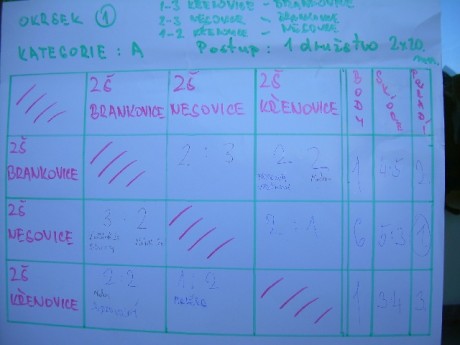 OKRSEK 1
1-3 KŘENOVICE - BRANKOVICE
2-3 NESOVICE - BRANKOVICE
1-2 KŘENOVICE - NESOVICE
KATEGORIE: A
Postup: 1 družstvo 2x20
ZŠ BRANKOVICE
ZŠ NESOVICE
ZŠ KŘENOVICE
BODY
SKÓRE
POŘADÍ
ZŠ BRANKOVICE
2:3
2 2
1
4:5
2
ZŠ NESOVICE
3:2
2:1
6
5:3
1
ZŠ KŘENOVICE
2:2
1:2
1
3:4
3